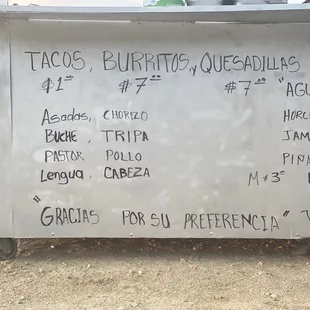 TACOS, BURRITOS, QUESADILLAS
$1.00 $7.00 $7.00 "AGU
Asadas, CHORIZO HORC
BUCHE, TRIPA JAM
PASTOR POLLO PIÑA
Lengua, CABEZA M $3.00
"GRACIAS POR SU PREFERENCIA"